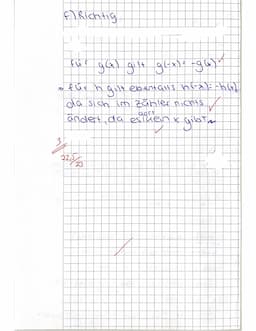 f) Richtig
für g(x) gilt g(-x) = -g(x)
für h gilt ebenfalls h(-x) = -h(x)
da sich im Zähler nichts
ändert, da es dort kein x gibt.
3
22,5/23